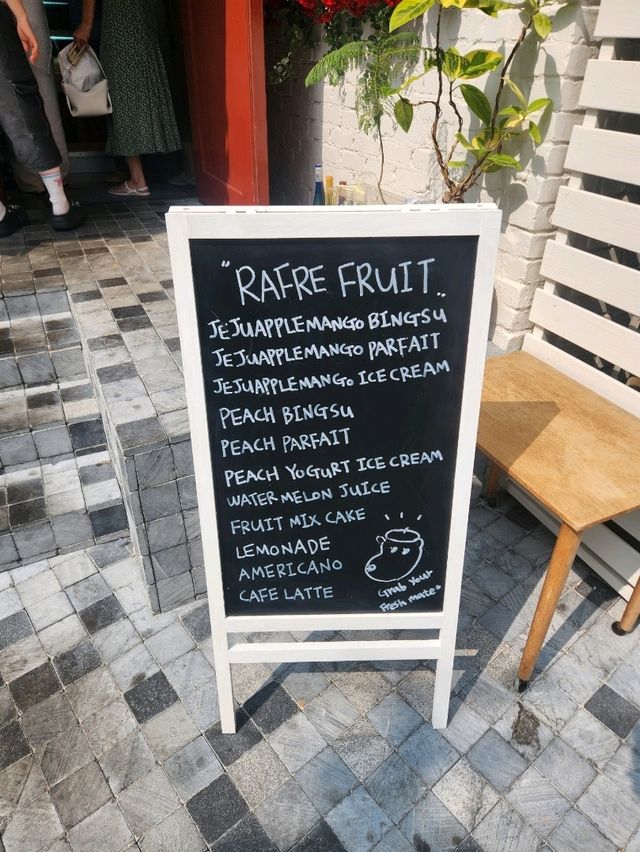 "RAFRE FRUIT"
JEJUAPPLEMANGO BINGSU
JEJUAPPLEMANGO PARFAIT
JEJUAPPLEMANGO ICE CREAM
PEACH BINGSU
PEACH PARFAIT
PEACH YOGURT ICE CREAM
WATERMELON JUICE
FRUIT MIX CAKE
LEMONADE
AMERICANO
CAFE LATTE
Grab Your
Fresh mate